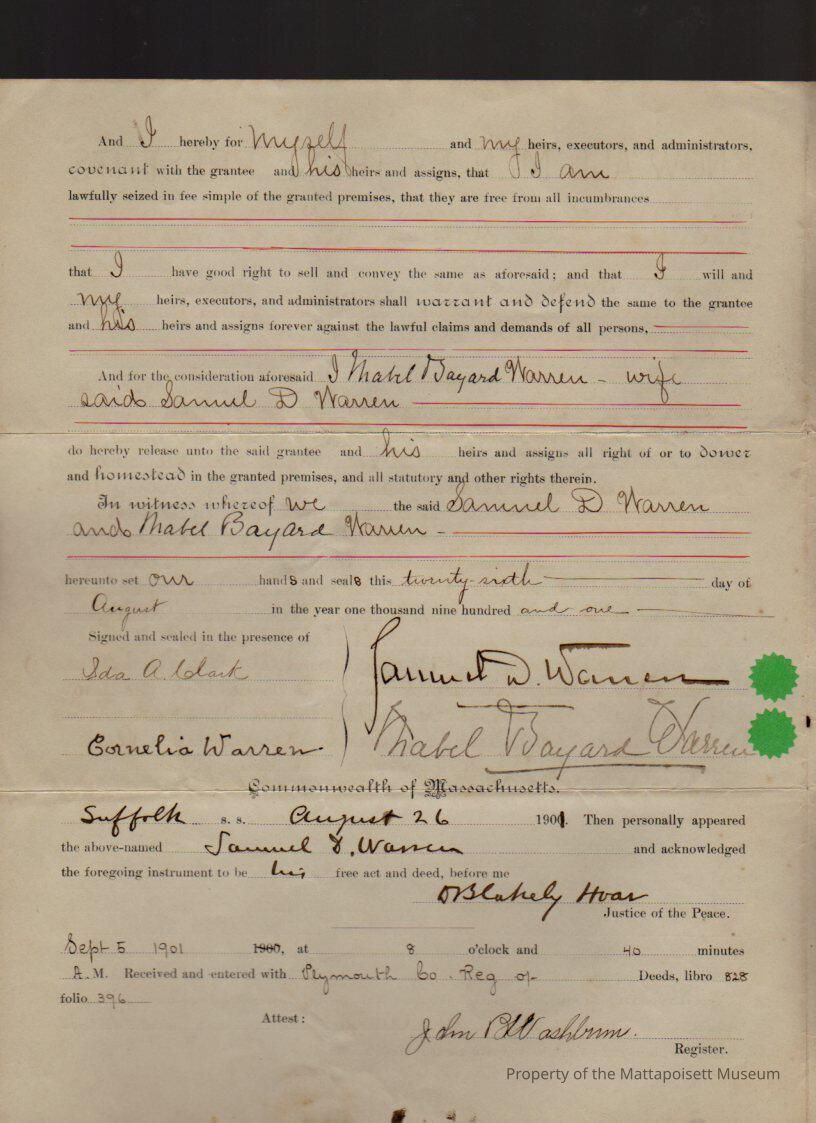 And I hereby for myself and my heirs, executors, and administrators,
covenant with the grantee and his heirs and assigns, that I am
lawfully seized in fee simple of the granted premises, that they are free from all incumbrances
that I have good right to sell and convey the same as aforesaid; and that I will and
my heirs, executors, and administrators shall warrant and defend the same to the grantee
and his heirs and assigns forever against the lawful claims and demands of all persons,
And for the consideration aforesaid I Mabel Bayard Warren - wife
said Samuel D Warren
do hereby release unto the said grantee and his heirs and assigns all right of or to dower
and homestead in the granted premises, and all statutory and other rights therein.
In witness whereof we the said Samuel D Warren
and Mabel Bayard Warren -
hereunto set our hands and seals this twenty-sixth day of
August in the year one thousand nine hundred and one
Signed and sealed in the presence of
Ida A. Clark
Samuel D. Warren
Cornelia Warren.
Mabel Bayard Warren
Commonwealth of Massachusetts.
Suffolk s. s. August 26 1901. Then personally appeared
the above-named Samuel D. Warren and acknowledged
the foregoing instrument to be his free act and deed, before me
D Blakely Hoar
Justice of the Peace.
Sept 5 1901 1900, at 8 o'clock and 40 minutes
A.M. Received and entered with Plymouth Co. Reg of Deeds, libro 828
folio 396
Attest:
John B Washburn.
Register.
Property of the Mattapoisett Museum